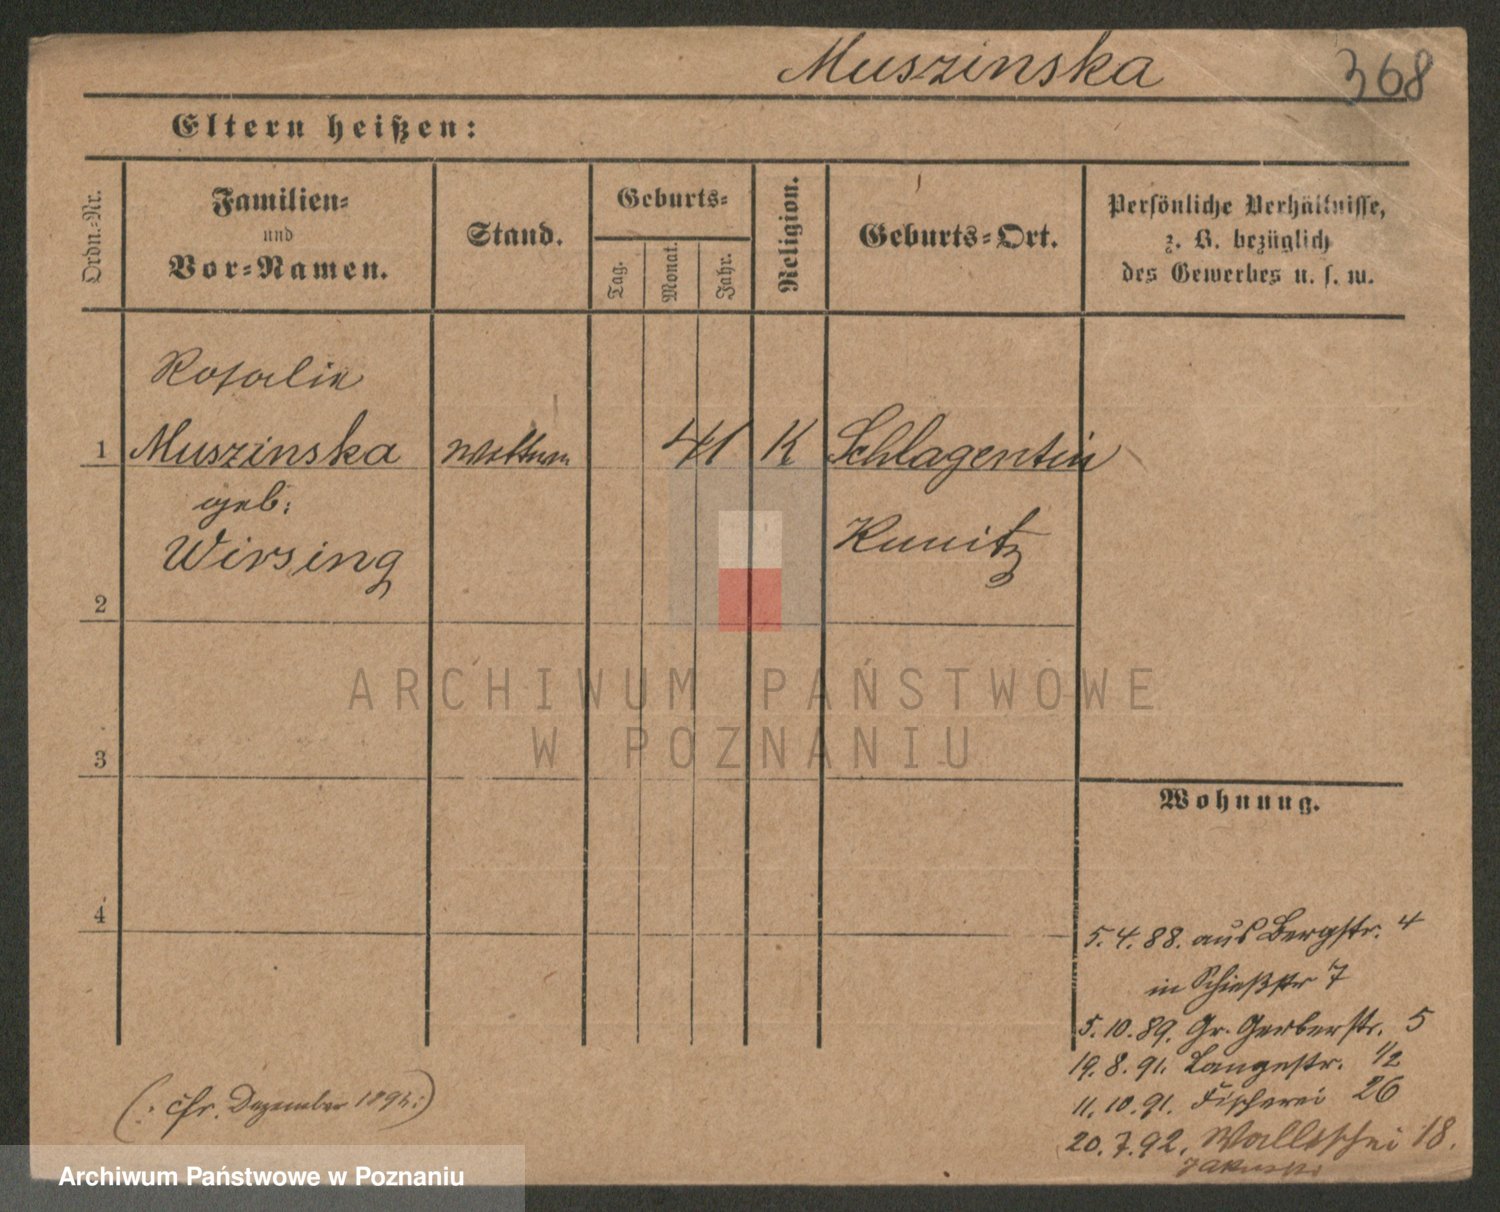 Muszinska
368
Eltern heißen:
Ordn.-Nr.
Familien-
und
Vor-Namen.
Stand.
Geburts-
Tag.
Monat.
Jahr.
Religion.
Geburts-Ort.
Persönliche Verhältnisse,
z. B. bezüglich
des Gewerbes u. s. w.
Rosalie
1 Muszinska 41 K Schlagentin
geb:
Wirsing Kunitz
2
ARCHIWUM PAŃSTWOWE
W POZNANIU
3
Wohnung.
4
5.4.88. aus Bergstr. 4
in Schießstr 7
5.10.89. Gr. Gerberstr. 5
19.8.91. Langestr. 1/2
11.10.91. Fischerei 26
20.7.92. Wallischei 18.
(: cfr. Dezember
Archiwum Państwowe w Poznaniu